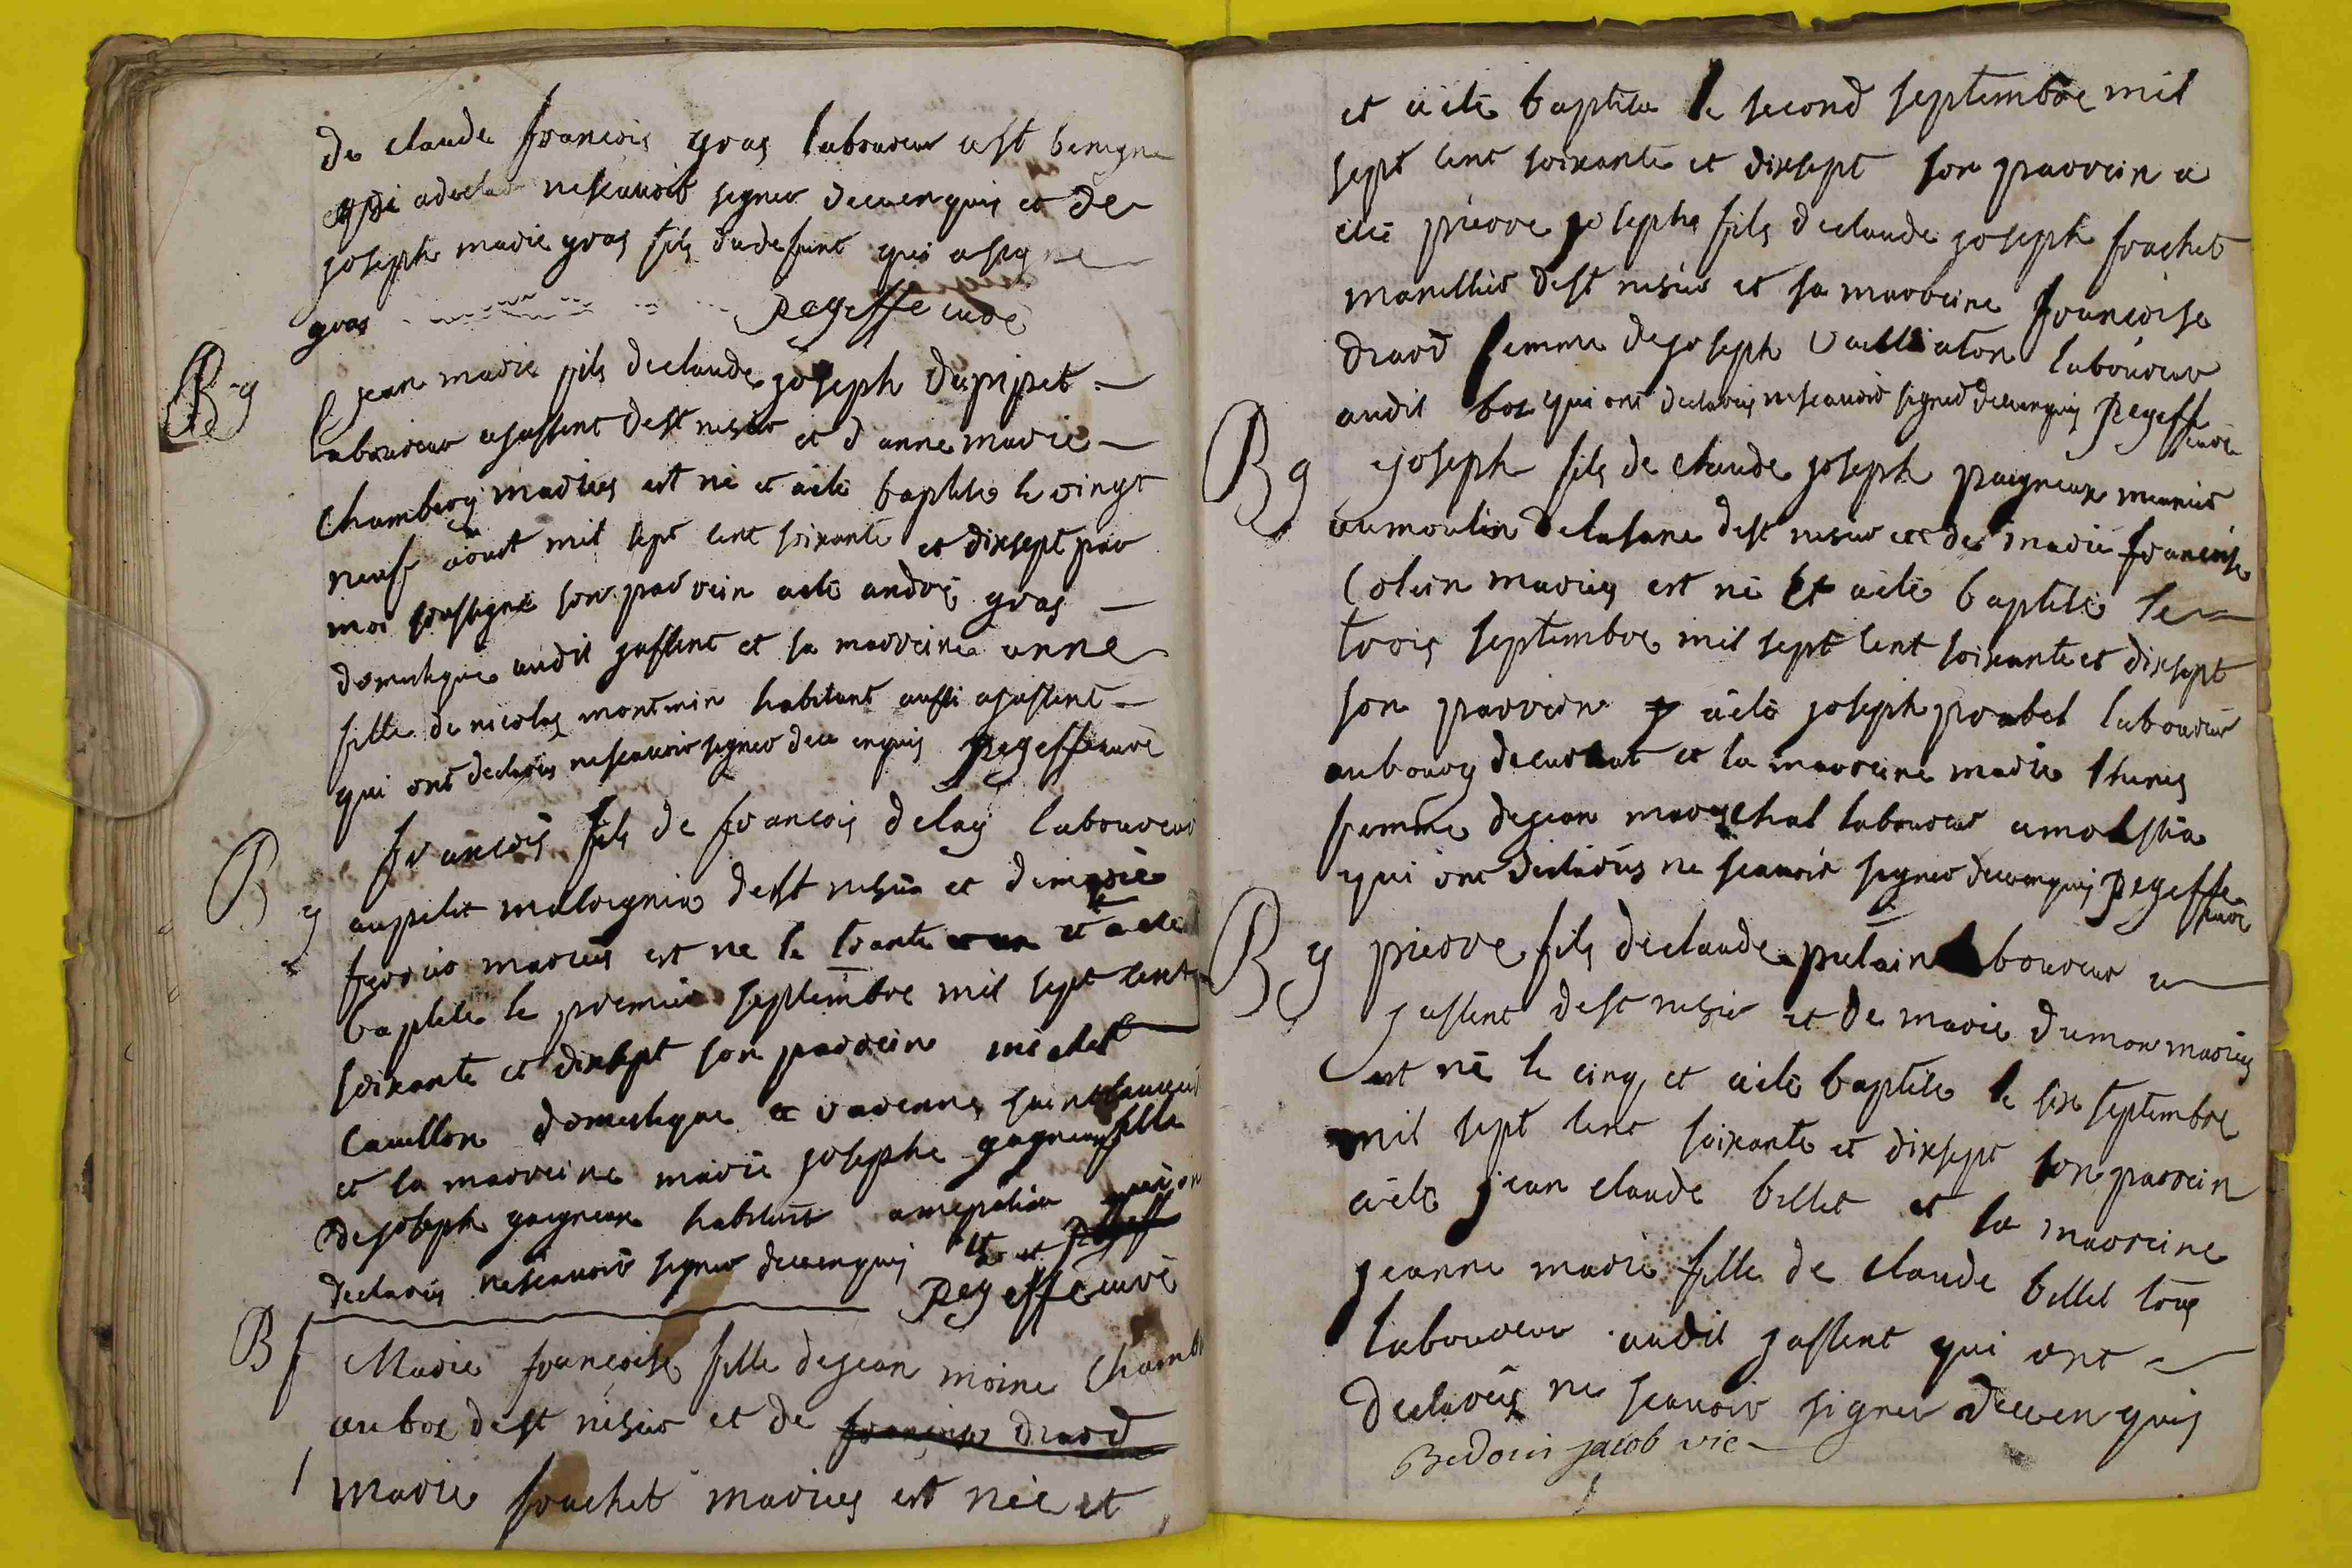 de claude francois gras laboureur a st benigne
qui a declaré ne scauoir signer de ce enquis et de
joseph marie gras fils du defunt qui a signe
gras pageffe curé
B g jean marie fils de claude joseph dupipet
laboureur a jassent de st nisier et d anne marie
chambery mariés est né et a été baptisé le vingt
neuf aout mil sept cent soixante et dixsept par
moi soussigné son parrein a eté andré gras
domestique audit jassent et sa marreine anne
fille de nicolas montmin habitant aussi a jassent
qui ont declarés ne scauoir signer de ce enquis pageffe curé
B g francois fils de francois delay laboureur
au petit malvignia de st nisier et de marie
mariés est né le trante et a eté
baptise le premier septembre mil sept cent
soixante et dixsept son parrein michel
cauillon domestique a varenne saint sauueur
et la marreine marie josephe gagneux fille
de joseph gaigneux habitant qui on
declarés ne scauoir signer de ce enquis
pageffe curé
B f Marie francoise fille de jean moine
au bos de st nisier et de francoise drard
marie frachet mariés est née et
et a eté baptisée le second septembre mil
sept cent soixante et dixsept son parrein a
eté pierre joseph fils de claude joseph frachet
manillier de st nisier et sa marreine francoise
drard femme de joseph vailliaton laboureur
audit bos qui ont declarés ne scauoir signer de ce enquis pageffe
curé
B g joseph fils de claude joseph paigneux meunier
au moulin de la sane de st nisier et de marie francoise
colin mariés est né et a eté baptisé le
trois septembre mil sept cent soixante et dixsept
son parrein a eté joseph prabel laboureur
au bourg de curciat et la marreine marie
femme de jean maréchal laboureur
qui ont declarés ne scauoir signer de ce enquis pageffe
curé
B g pierre fils de claude putain laboureur a
jassent de st nisier et de marie dumon mariés
est né le cinq et a eté baptisé le six septembre
mil sept cent soixante et dixsept son parrein
a eté jean claude billet et sa marreine
jeanne marie fille de claude billet tous
laboureur audit jassent qui ont
declarés ne scauoir signer de ce enquis
Bedouin jacob vic